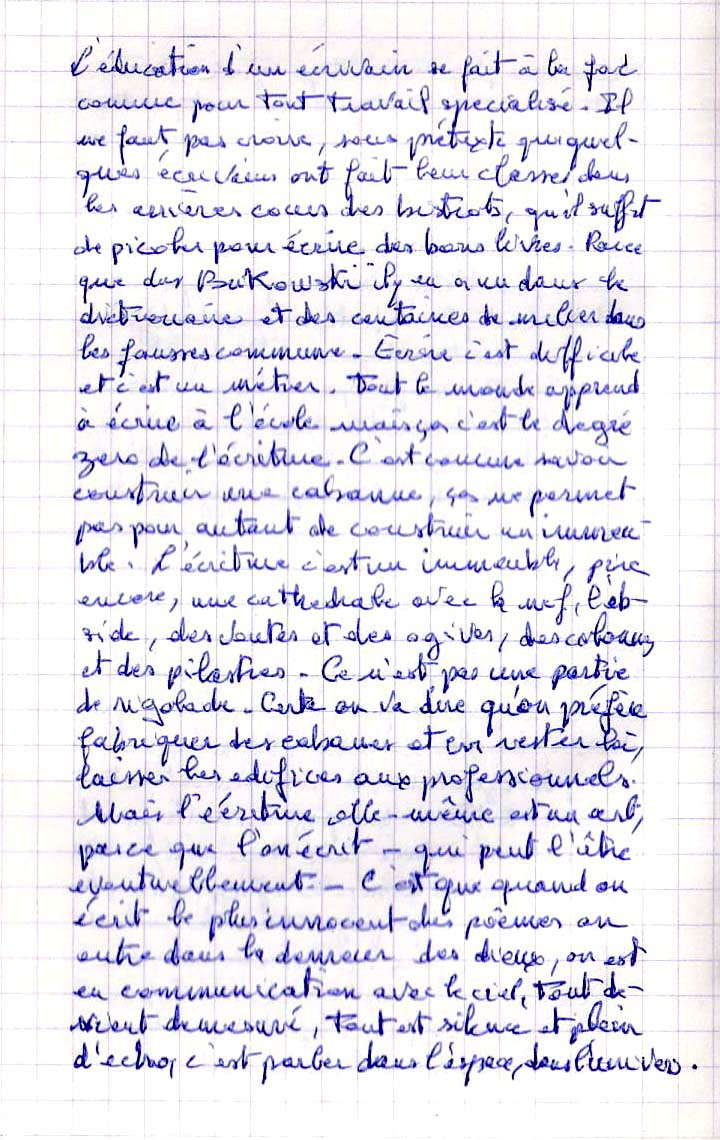 L'éducation d'un écrivain se fait à la fac
comme pour tout travail specialisé. Il
ne faut pas croire, sous prétexte que quel-
ques écrivains ont fait leur classes dans
les arrières cours des bistrots, qu'il suffit
de picoler pour écrire des bons livres. Parce
que des Bukowski il y en a un dans le
dictionnaire et des centaines de milier dans
les fausses commune. Ecrire c'est difficile
et c'est un métier. Tout le monde apprend
à écrire à l'école mais ça c'est le degré
zero de l'écriture. C'est comme savoir
construir une cabanne, ça ne permet
pas pour autant de construir un immeu-
ble. L'écriture c'est un immeuble, pire
encore, une cathedrale avec la nef, l'ab-
side, des voutes et des ogives, des colonnes
et des pilastres. Ce n'est pas une partie
de rigolade. Certe on va dire qu'on préfère
fabriquer des cabanes et en rester là,
laisser les edifices aux professionnels.
Mais l'écriture elle-même est un art,
parce que l'on écrit - qui peut l'être
eventuellement - C'est que quand on
écrit le plus innocent des poèmes on
entre dans la demeure des dieux, on est
en communication avec le ciel, tout de-
vient demesuré, tout est silence et plein
d'echos, c'est parler dans l'espace, dans l'univers.